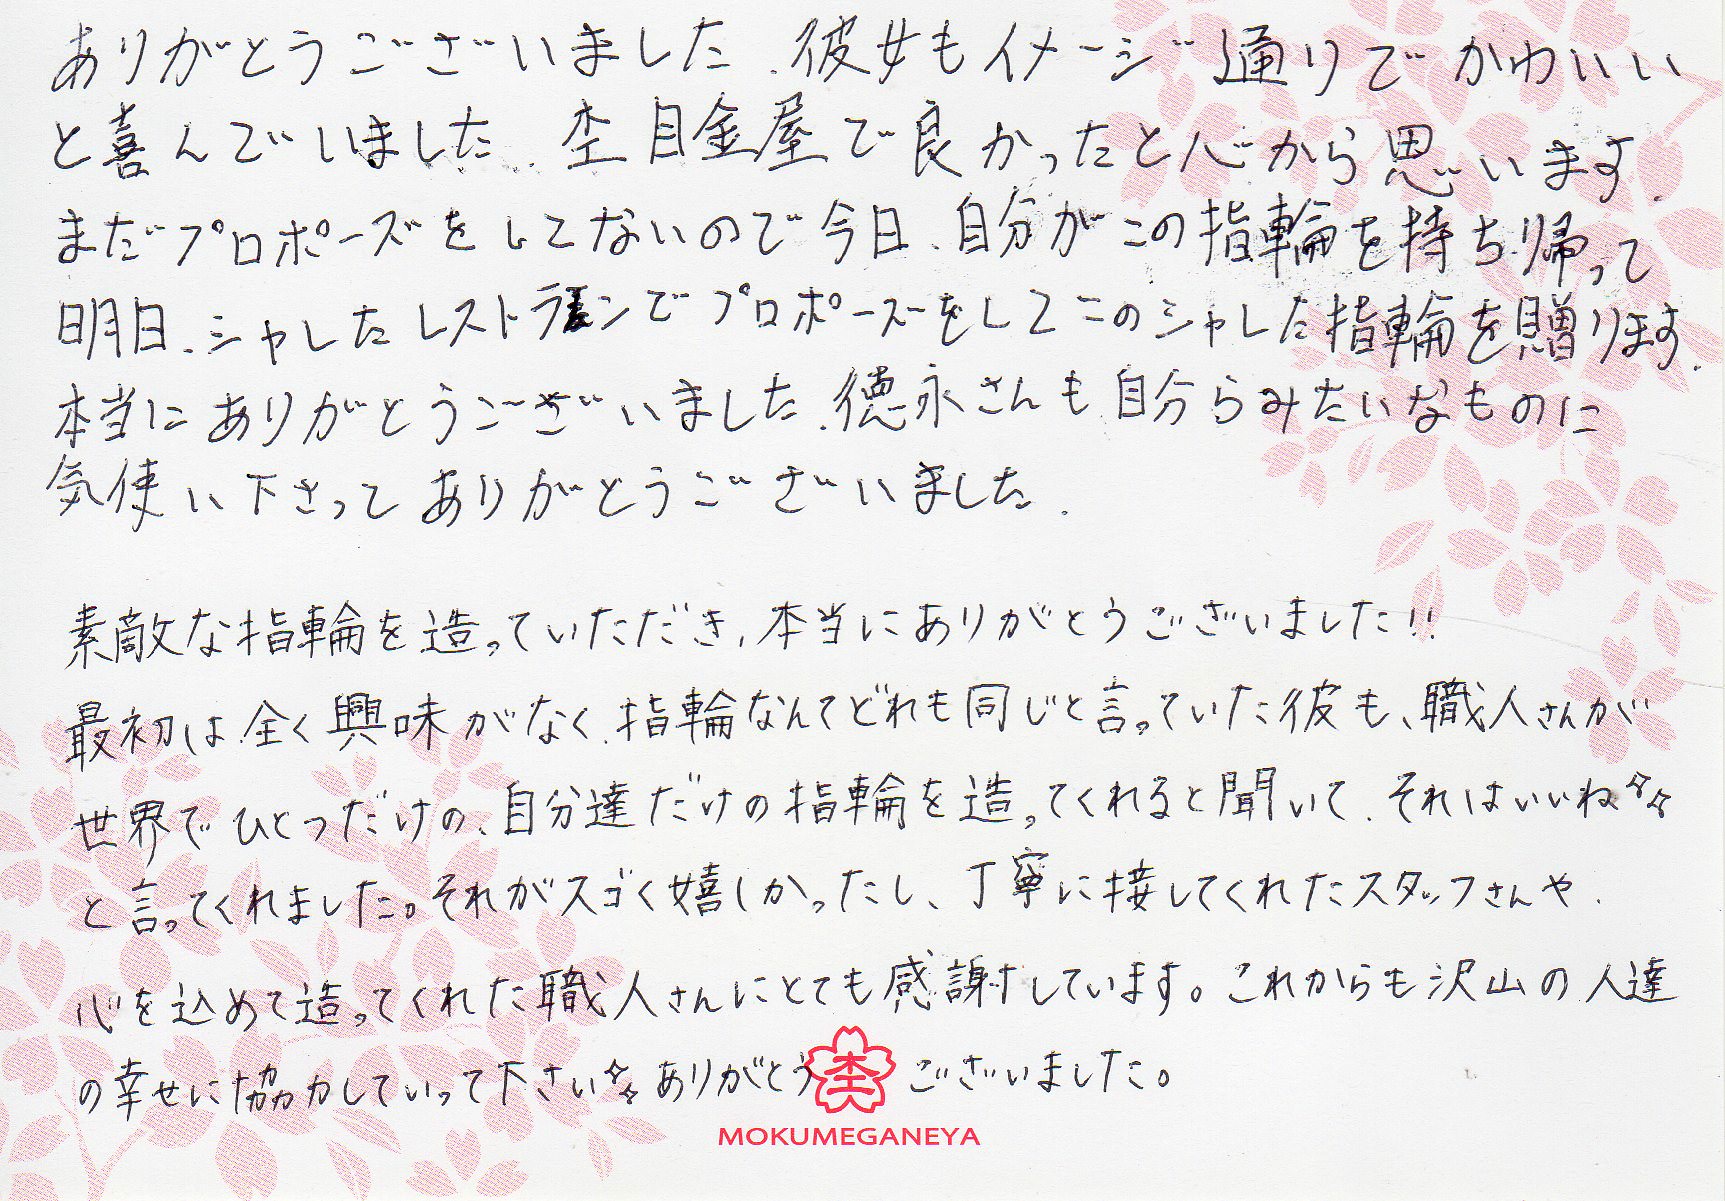 ありがとうございました、彼女もイメージ通りでかわいい
と喜んでいました、杢目金屋で良かったと心から思います.
まだプロポーズをしてないので今日、自分がこの指輪を持ち帰って
明日、シャしたレストランでプロポーズをしてこのシャした指輪を贈ります.
本当にありがとうございました.徳永さんも自分らみたいなものに
気使い下さってありがとうございました.
素敵な指輪を造っていただき、本当にありがとうございました!!
最初は全く興味がなく、指輪なんてどれも同じと言っていた彼も、職人さんが
世界でひとつだけの、自分達だけの指輪を造ってくれると聞いて、それはいいね✧✧
と言ってくれました。それがスゴく嬉しかったし、丁寧に接してくれたスタッフさんや、
心を込めて造ってくれた職人さんにとても感謝しています。これからも沢山の人達
の幸せに協力していって下さい✧✧ありがとうございました。
杢
MOKUMEGANEYA